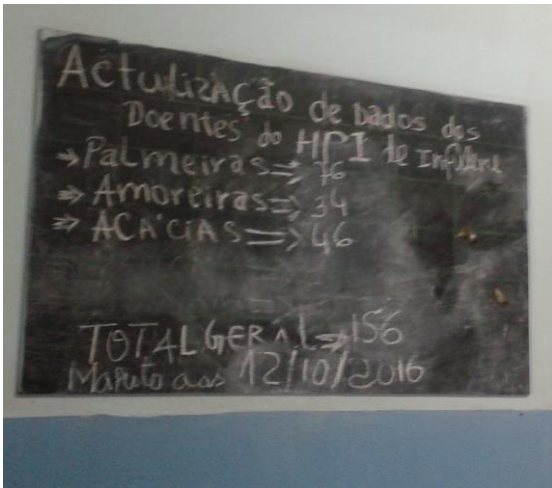 Actulização de Dados dos
Doentes do HPI de Infulene
⇒ Palmeiras ⇒ 76
⇒ Amoreiras ⇒ 34
⇒ ACÁCIAS ⇒ 46
TOTAL GERAL ⇒ 156
Maputo aos 12/10/2016